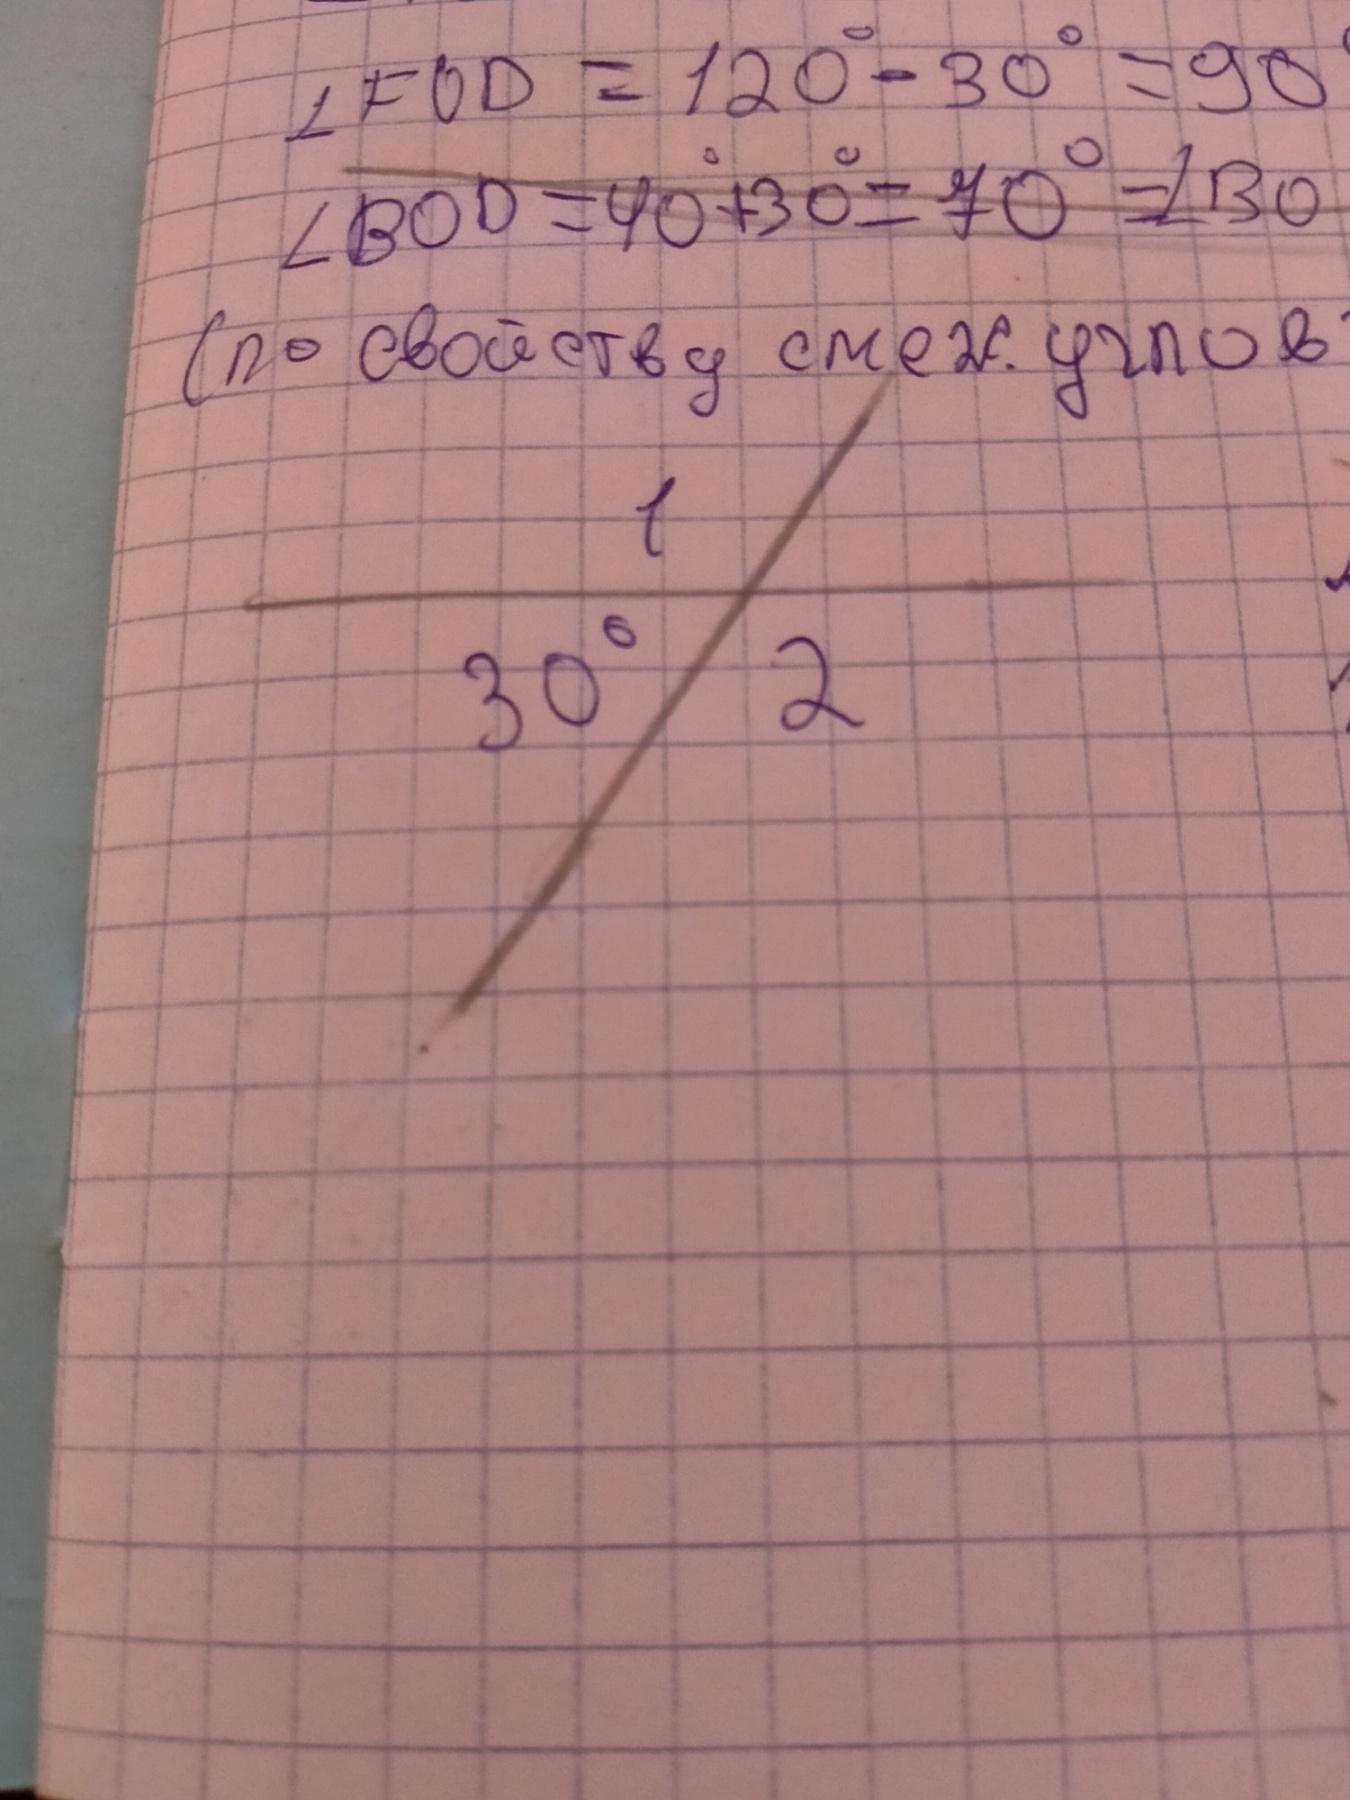 ∠FOD = 120° - 30° = 90°
∠BOD = 40° + 30° = 70° = ∠BO
(по свойству смеж. углов
1
30° 2